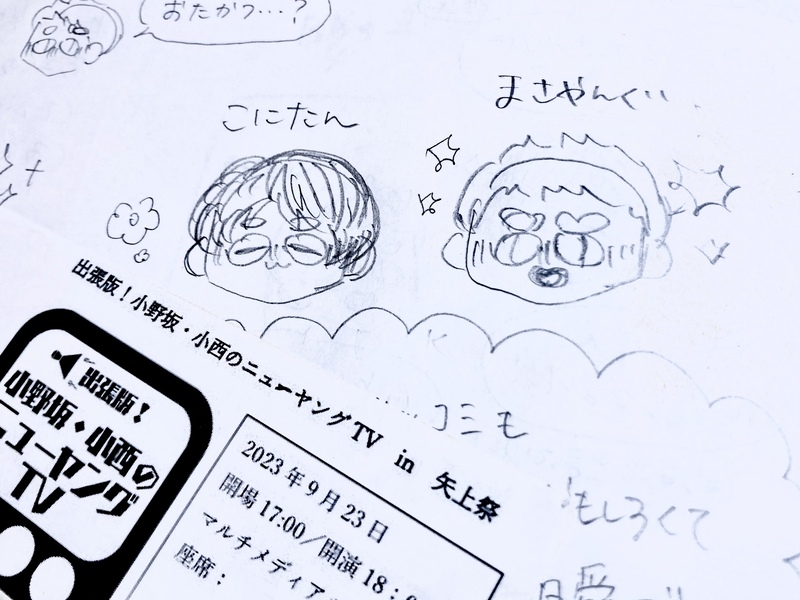 おたかつ…?
まさやんぐい
こにたん
出張版!小野坂・小西のニューヤングTV in 矢上祭
出張版!
小野坂・小西の
ニューヤング
TV
2023年9月23日
開場17:00/開演18:0
マルチメディア
座席:
コミモ
もしろくて